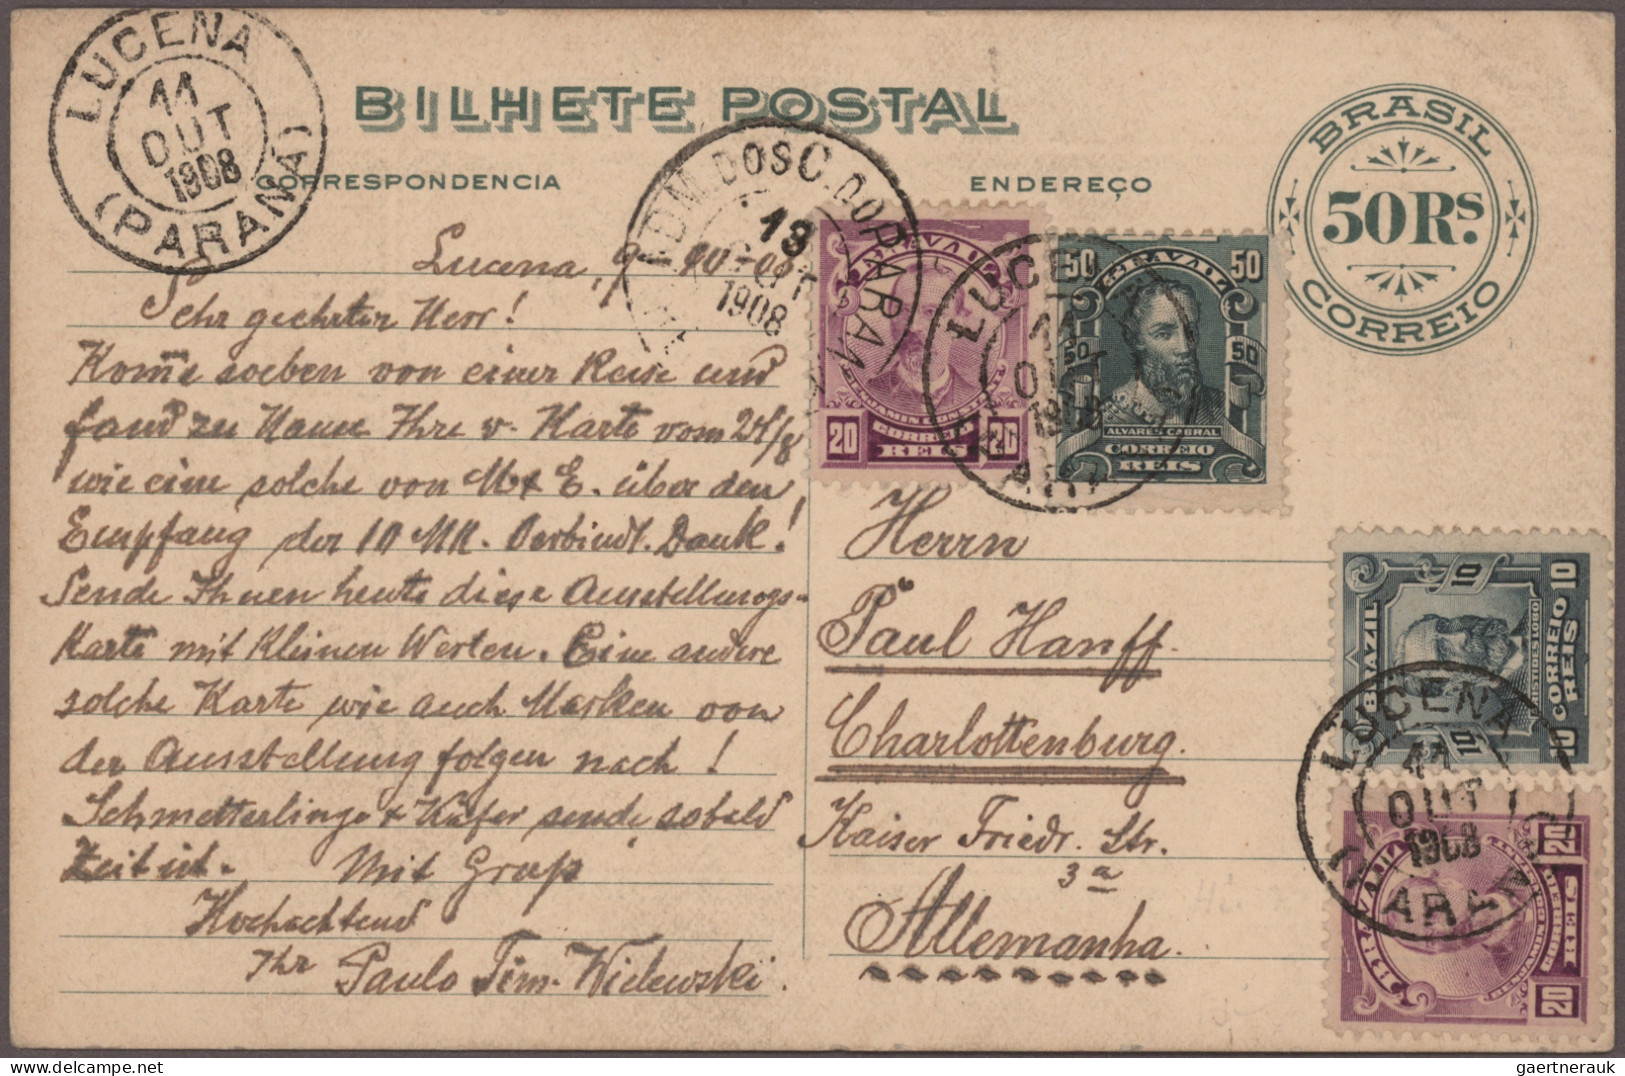 LUCENA
11
OUT
1908
(PARANA)
BILHETE POSTAL
CORRESPONDENCIA
ENDEREÇO
BRASIL
50 RS.
CORREIO
ADM. DOS C. DO PARANA
13
OUT
1908
BRAZIL
BENJAMIN CONSTANT
20 CORREIO 20
REIS
50 BRAZIL 50
50 50
ALVARES CABRAL
CORREIO
REIS
LUCENA
11
OUT
1908
PARANA
10 BRAZIL 10
ARISTIDES LOBO
CORREIO
REIS
10 10
LUCENA
11
OUT
1908
PARANA
BRAZIL
BENJAMIN CONSTANT
20 CORREIO 20
REIS
Lucena, 9-10-08
Sehr geehrter Herr!
Kom̄e soeben von einer Reise und
fand zu Hause Ihre w. Karte vom 24/8
wie eine solche von M & E. über den
Empfang der 10 MK. Verbindl. Dank!
Sende Ihnen heute diese Ausstellungs-
Karte mit kleinen Werten. Eine andere
solche Karte wie auch Marken von
der Ausstellung folgen nach!
Schmetterlinge & Käfer sende sobald
Zeit ist. Mit Gruß
Hochachtend
Ihr Paulo
Herrn
Paul Hanff.
Charlottenburg.
Kaiser Friedr. Str.
3a
Allemanha.
gaertnerauk